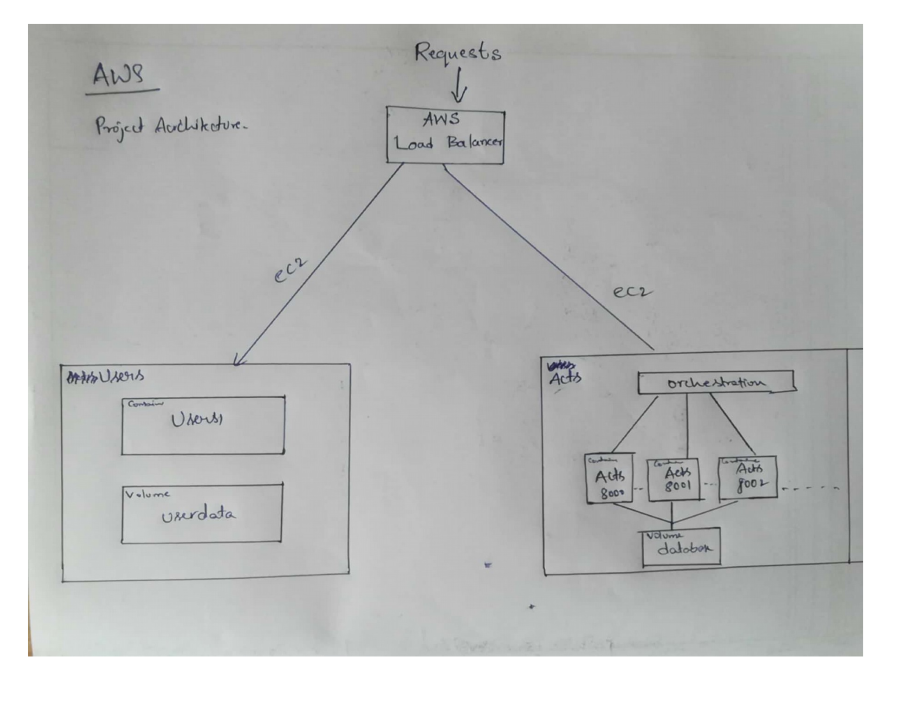 AWS
Project Architecture.
Requests
AWS
Load Balancer
ec2
ec2
Users
Container
Users,
Volume
userdata
Acts
orchestration
Container
Acts
8000
Container
Acts
8001
Container
Acts
8002
Volume
database